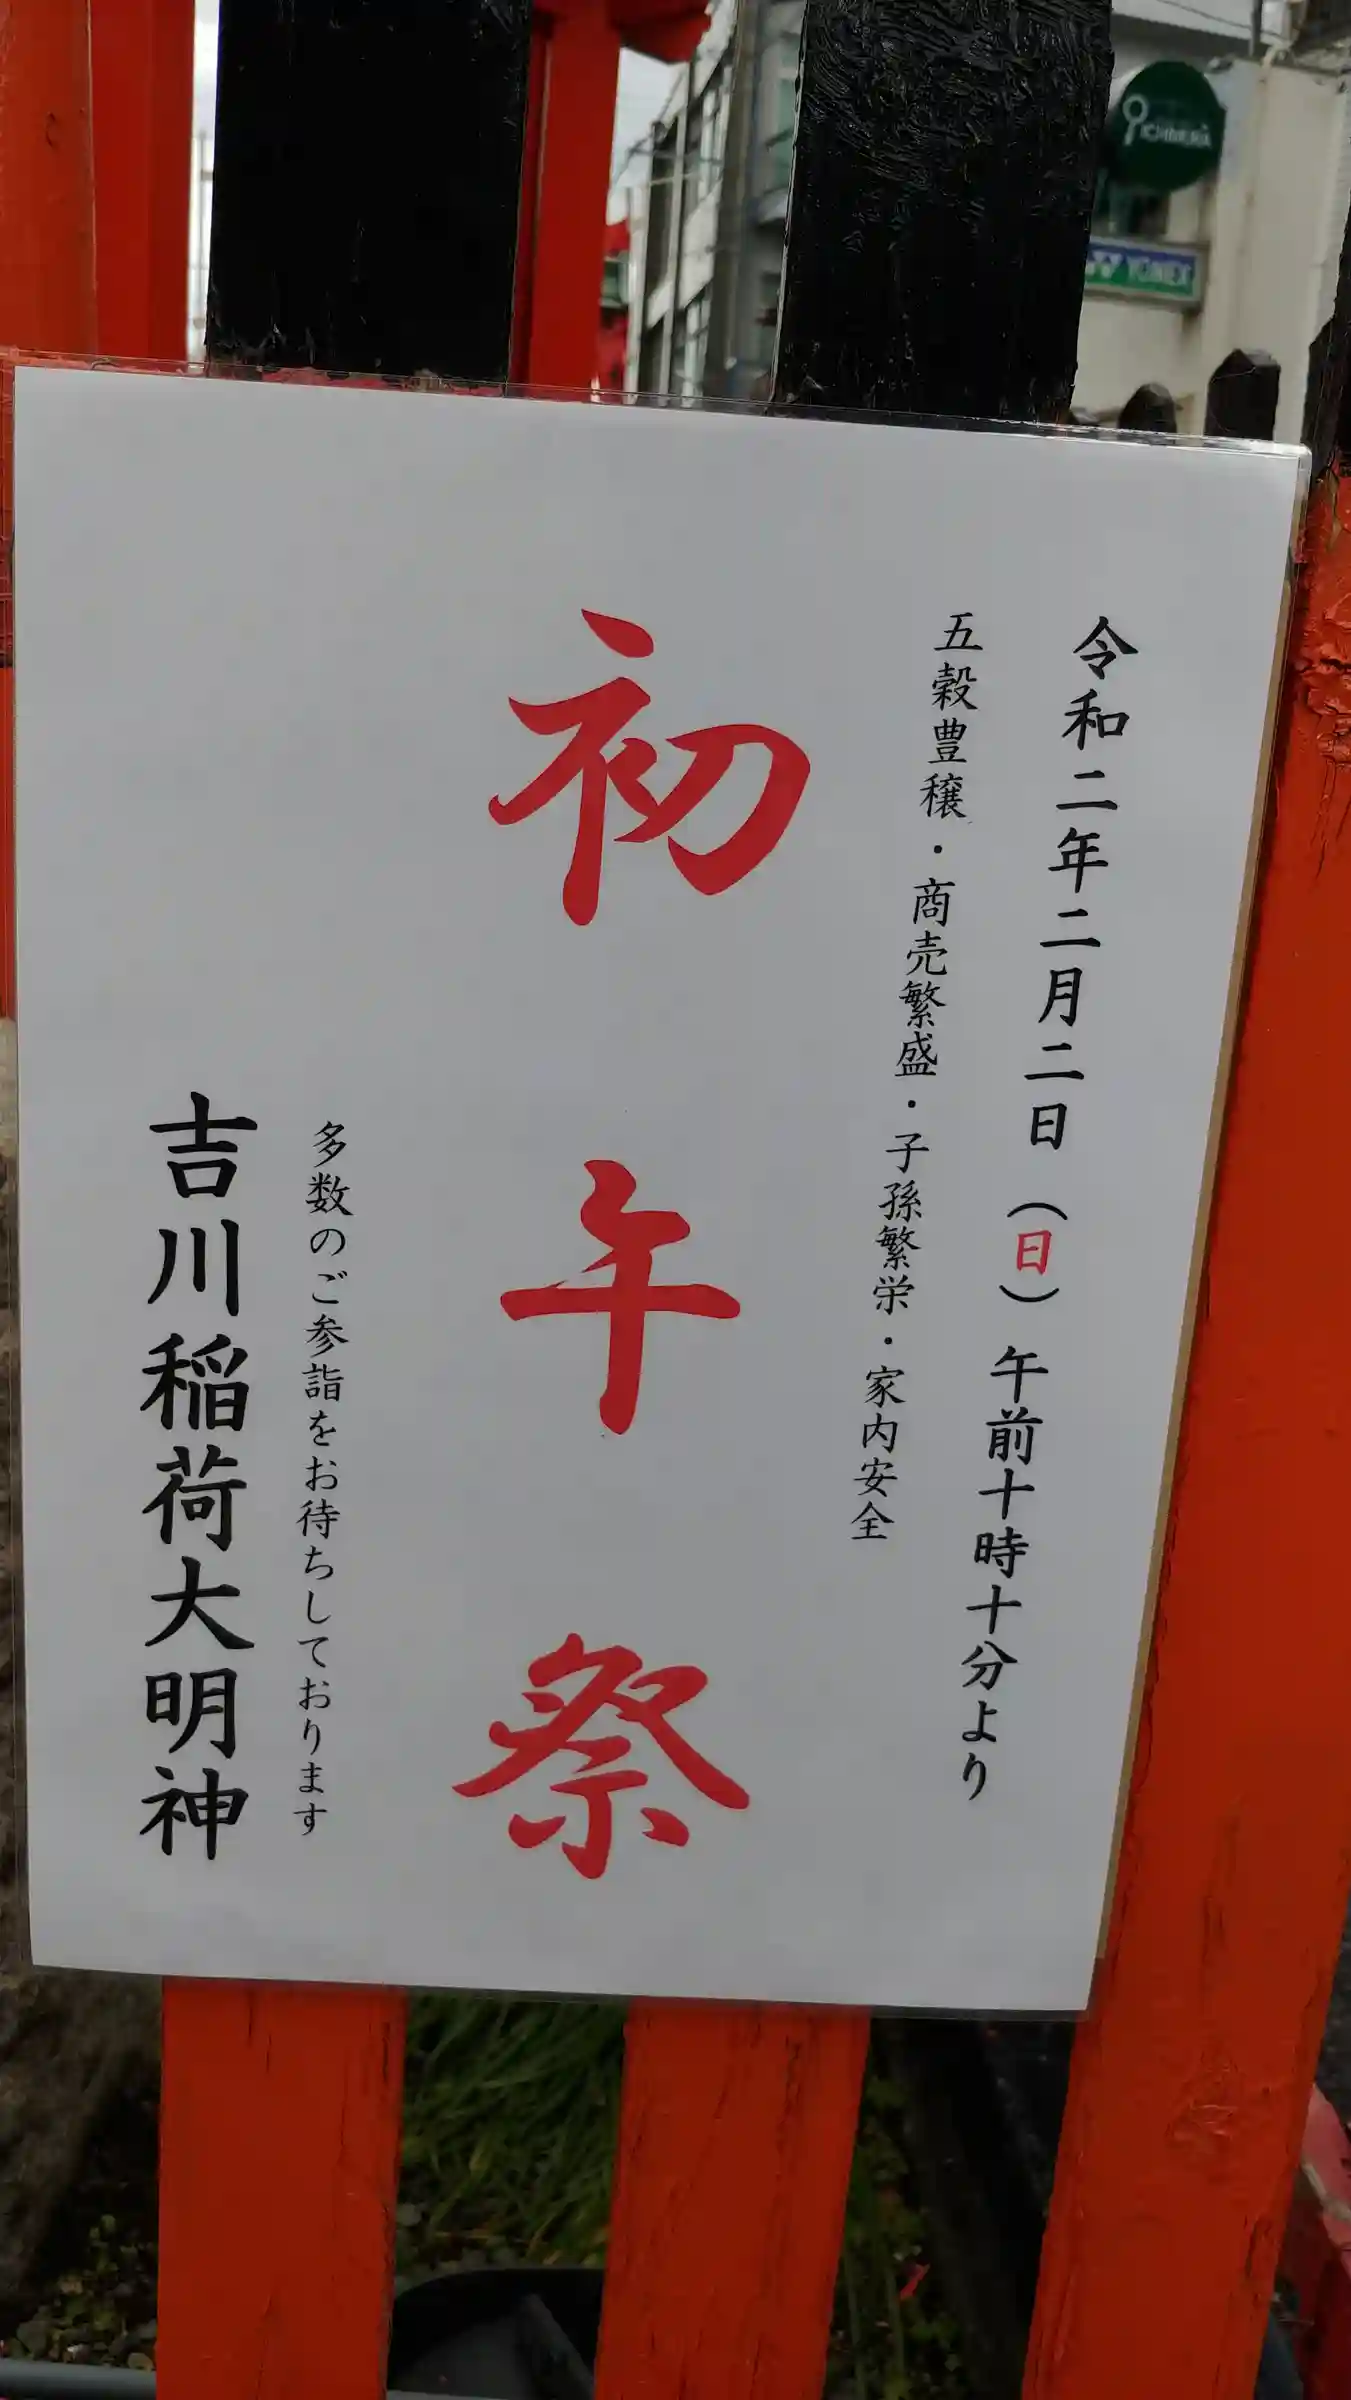 令和二年二月二日（日）午前十時十分より
五穀豊穣・商売繁盛・子孫繁栄・家内安全
初午祭
多数のご参詣をお待ちしております
吉川稲荷大明神
YONEX